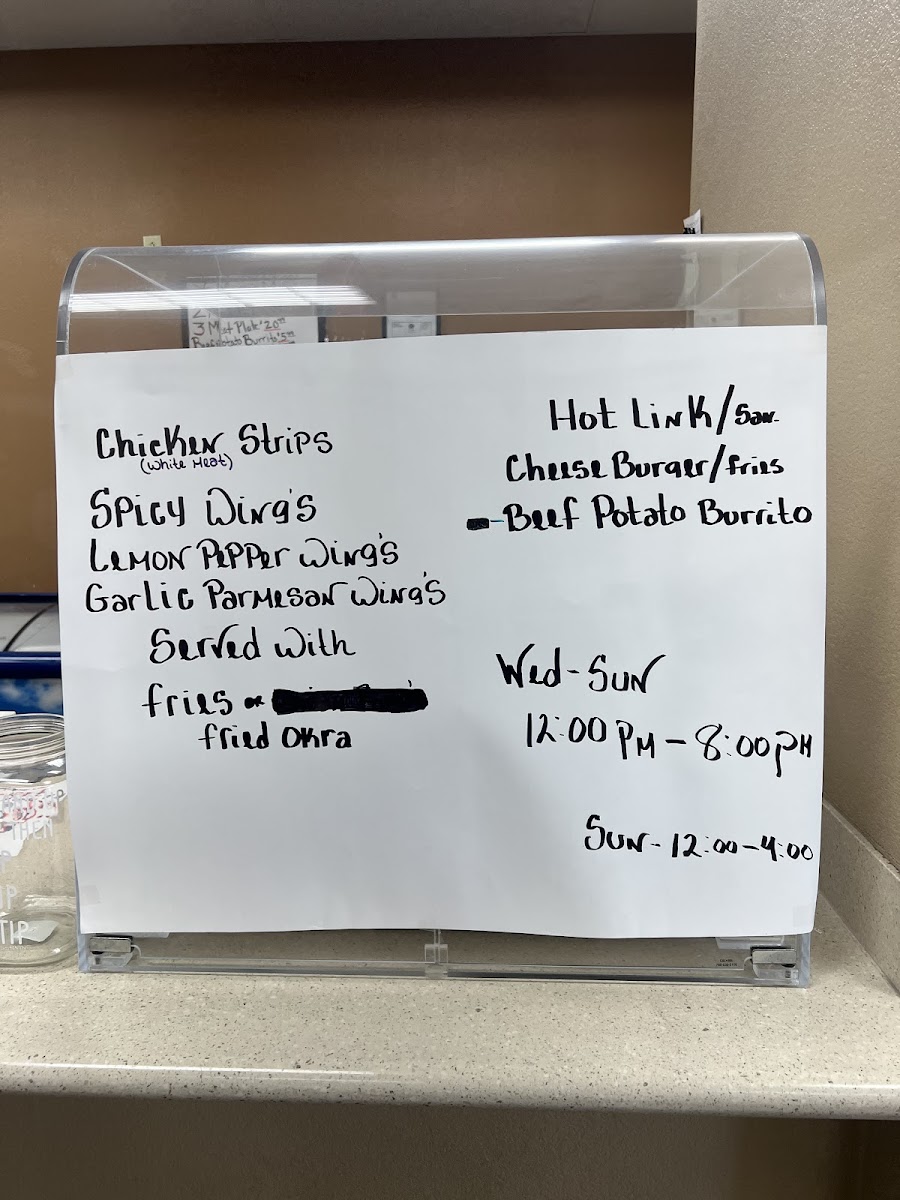 3 Meat Plate $20.00
Beef Potato Burrito $5.00
Chicken Strips
(White Meat)
Spicy Wing's
Lemon Pepper Wing's
Garlic Parmesan Wing's
Served With
fries or
fried okra
Hot Link/Saw.
Cheese Burger/fries
-Beef Potato Burrito
Wed-Sun
12:00 PM - 8:00 PM
Sun- 12:00-4:00
THEN
TIP